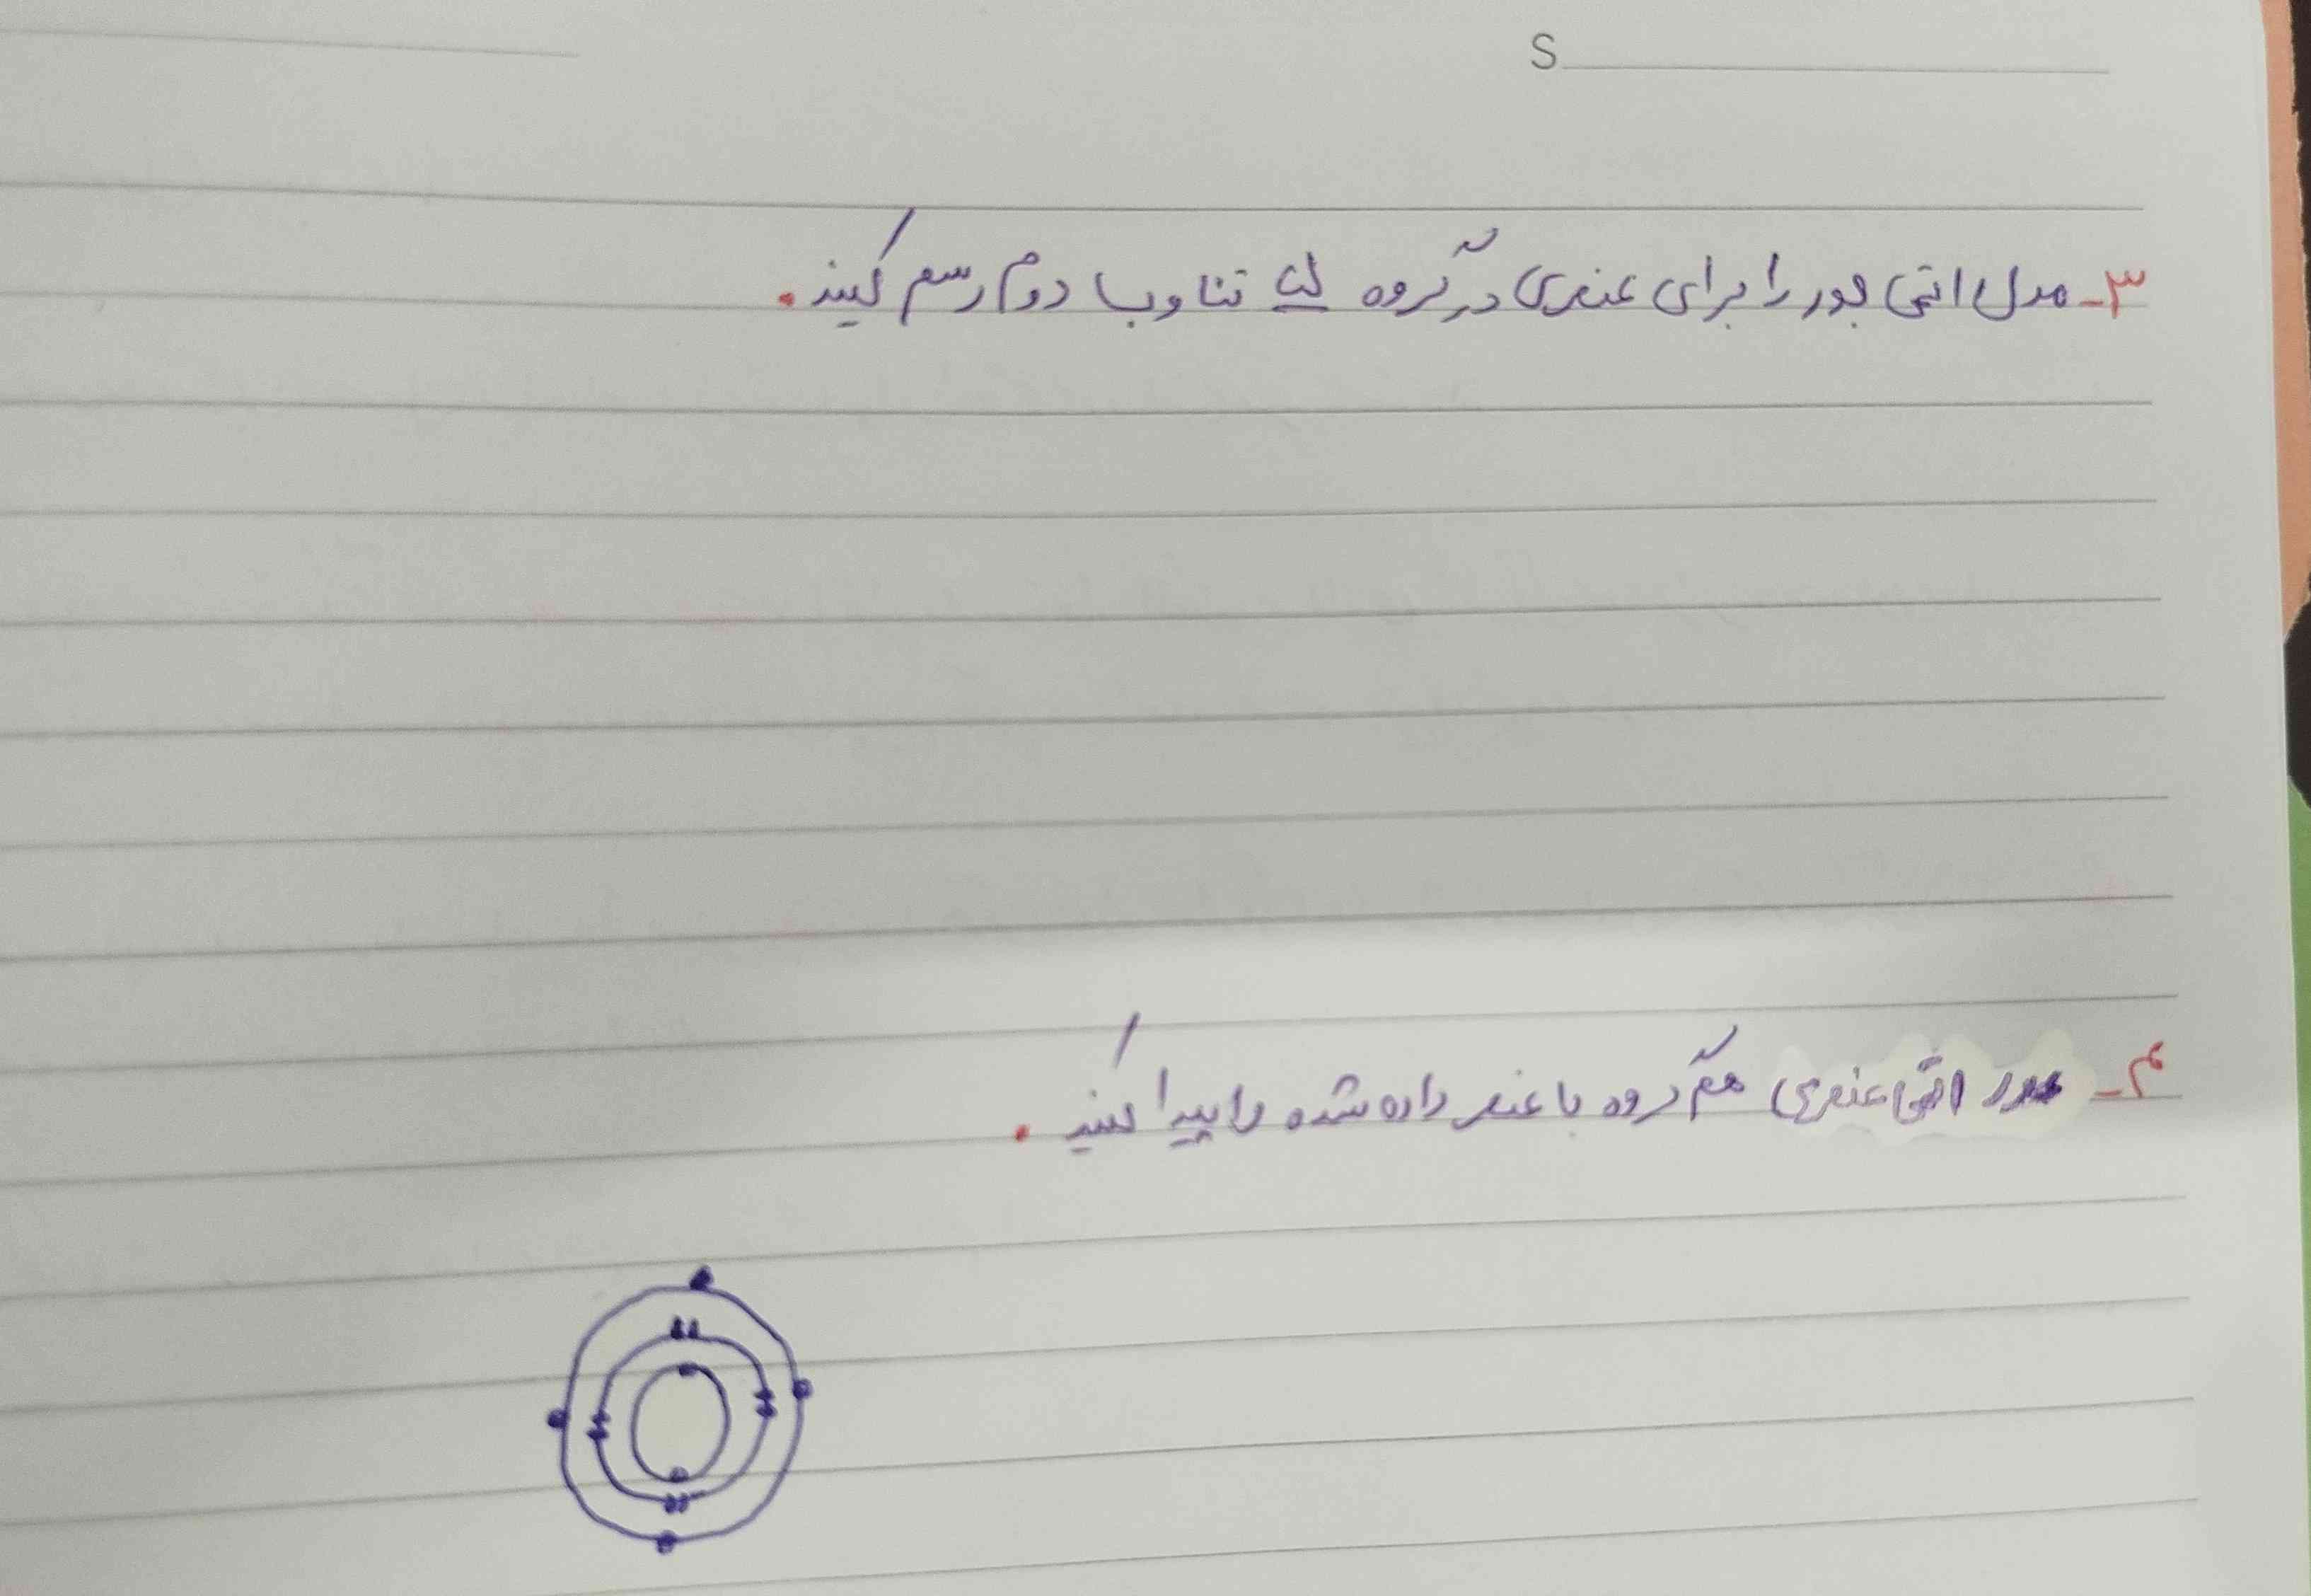 S
۳- مدل اتمی بور را برای عنصری در گروه تناوب دوم رسم کنید.
۴- عدد اتمی عنصری هم گروه با عنصر داده شده را پیدا کنید.